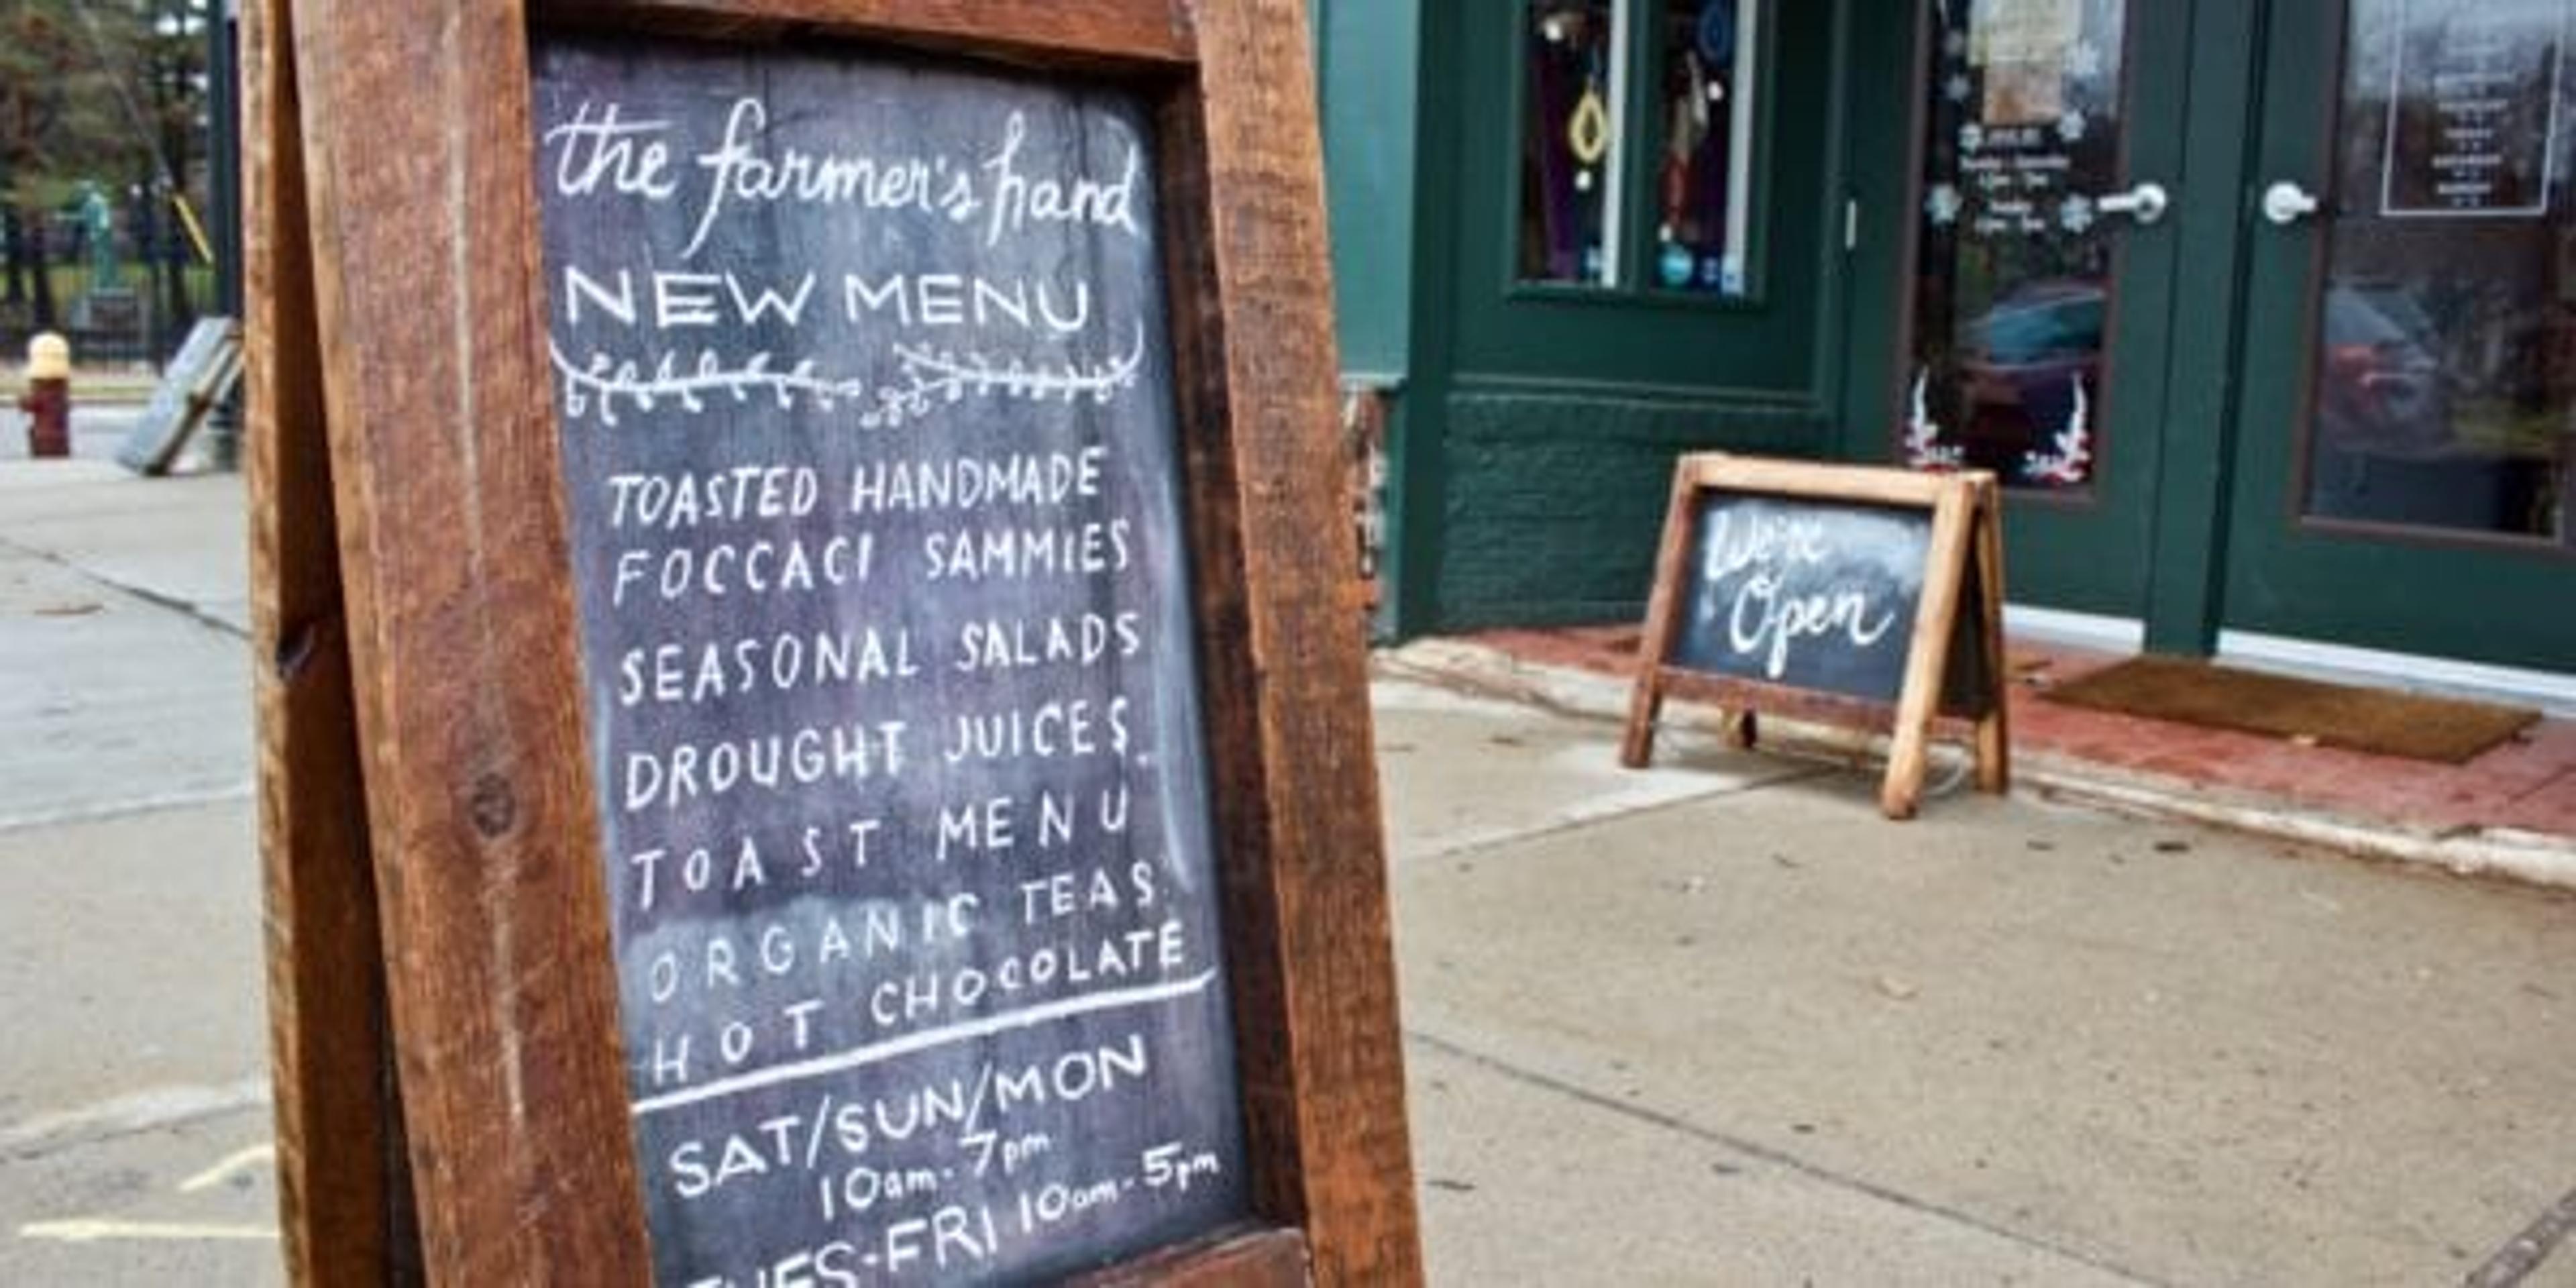 the farmer's hand
NEW MENU
TOASTED HANDMADE
FOCCACI SAMMIES
SEASONAL SALADS
DROUGHT JUICES
TOAST MENU
ORGANIC TEAS
HOT CHOCOLATE
SAT/SUN/MON
10am-7pm
TUES-FRI 10am-5pm
We're
Open